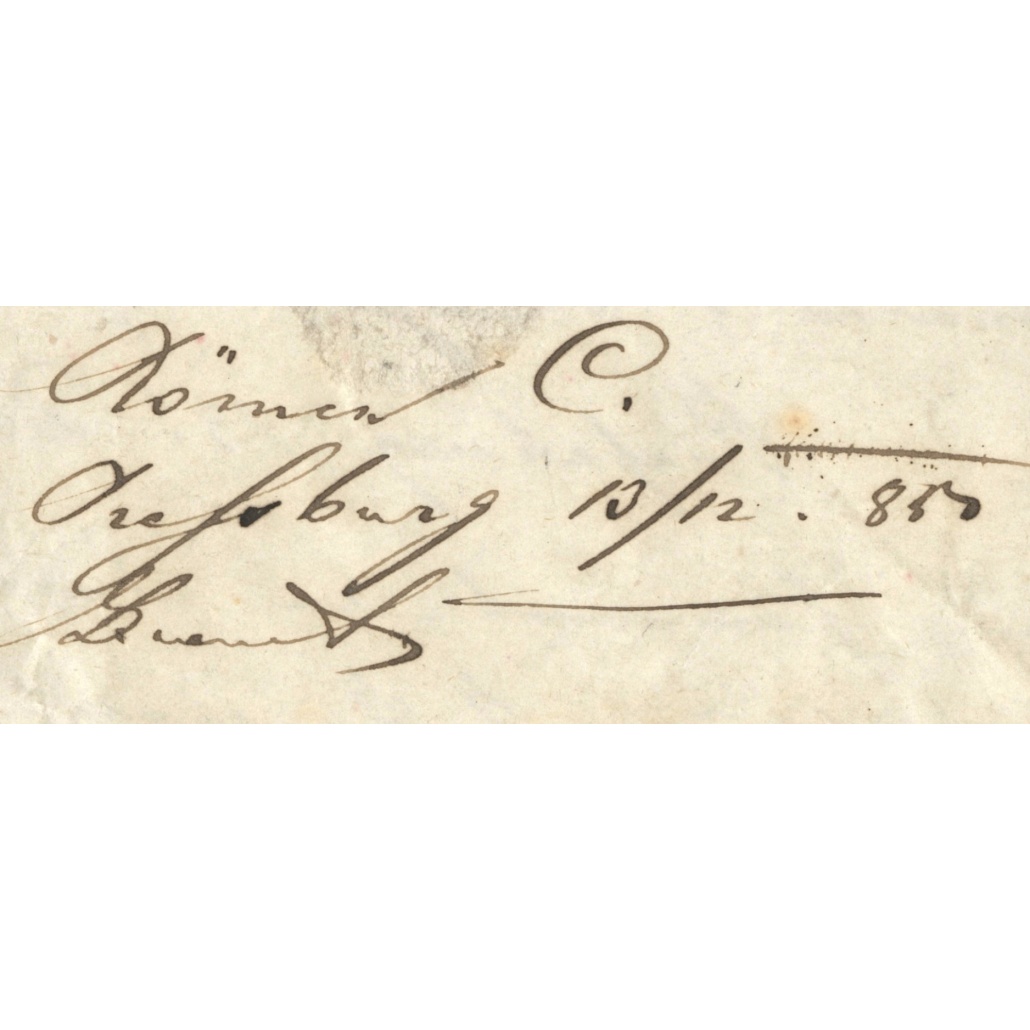 Römer C.
Pressburg 13/12. 850